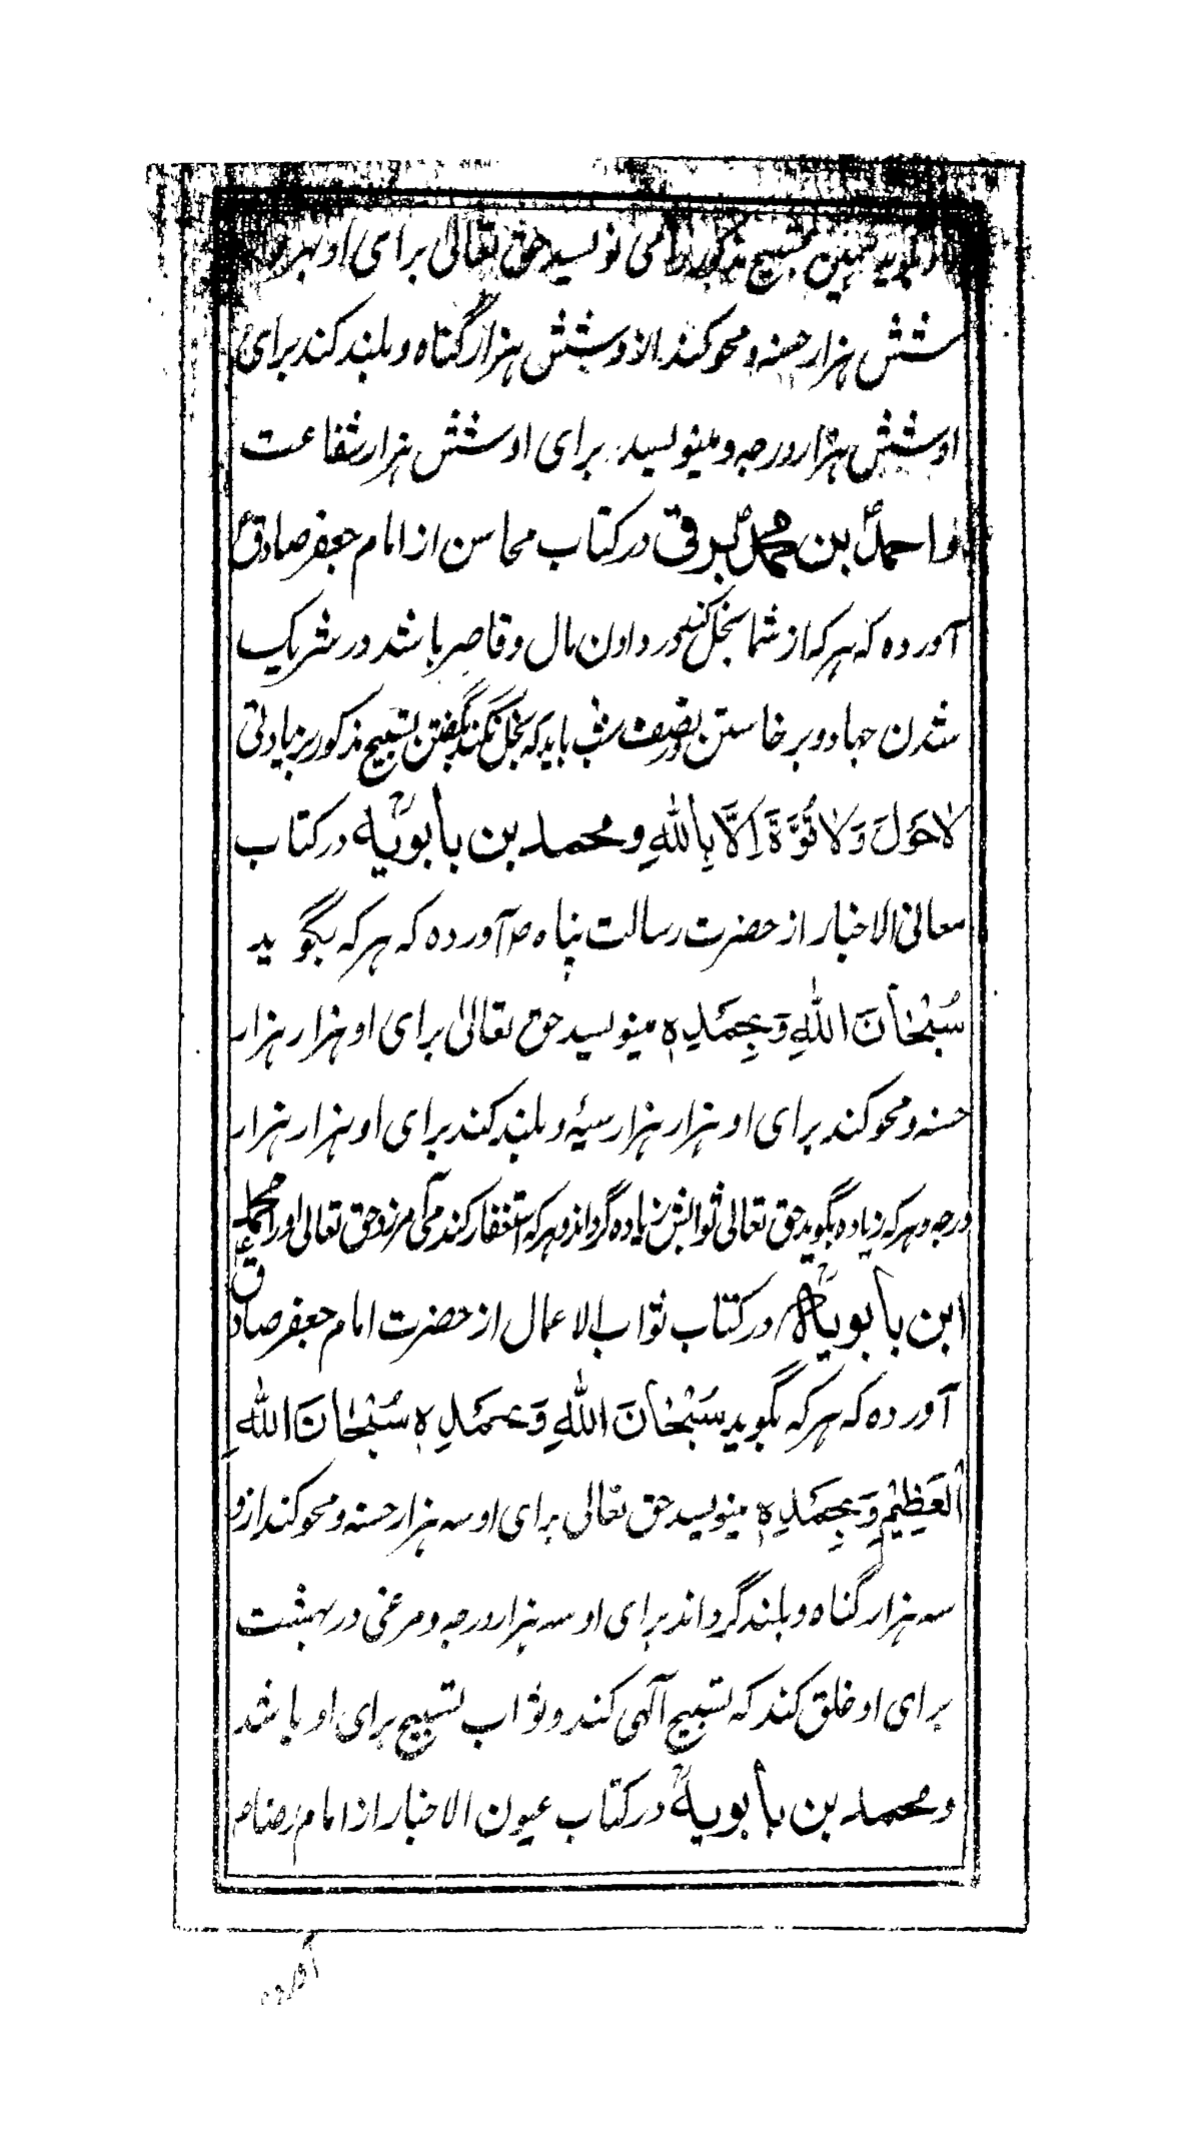 بگوید همین تسبیح مذکور را می نویسد حق تعالی برای او بهر
شش هزار حسنه و محو کند از و شش هزار گناه و بلند کند برای
او شش هزار درجه و مینویسد برای او شش هزار شفاعت
و احمد بن محمد برقی در کتاب محاسن از امام جعفر صادق ع
آورده که هر که از شما بخل کند در دادن مال و قاصر باشد در شریک
شدن جهاد و بر خاستن نصف شب باید که بخل نکند بگفتن تسبیح مذکور بزیادتی
لَاحَوْلَ وَلَا قُوَّةَ اِلَّا بِاللّٰهِ و محمد بن بابویه رح در کتاب
معانی الاخبار از حضرت رسالت پناه ص آورده که هر که بگوید
سُبْحَانَ اللّٰهِ وَبِحَمْدِهٖ مینویسد حق تعالیٰ برای او هزار هزار
حسنه و محو کند برای او هزار هزار سیئه و بلند کند برای او هزار هزار
درجه و هر که زیاده بگوید حق تعالی ثوابش زیاده گرداند و هر که استغفار کند می آمرزد حق تعالی او را محمد
ابن بابویه رح در کتاب ثواب الاعمال از حضرت امام جعفر صادق ع
آورده که هر که بگوید سُبْحَانَ اللّٰهِ وَبِحَمْدِهٖ سُبْحَانَ اللّٰهِ
الْعَظِیْمِ وَبِحَمْدِهٖ مینویسد حق تعالی برای او سه هزار حسنه و محو کند ازو
سه هزار گناه و بلند گرداند برای او سه هزار درجه و مرغی در بهشت
برای او خلق کند که تسبیح آلهی کند و ثواب تسبیح برای او باشد
و محمد بن بابویه رح در کتاب عیون الاخبار از امام رضا ع
آورده